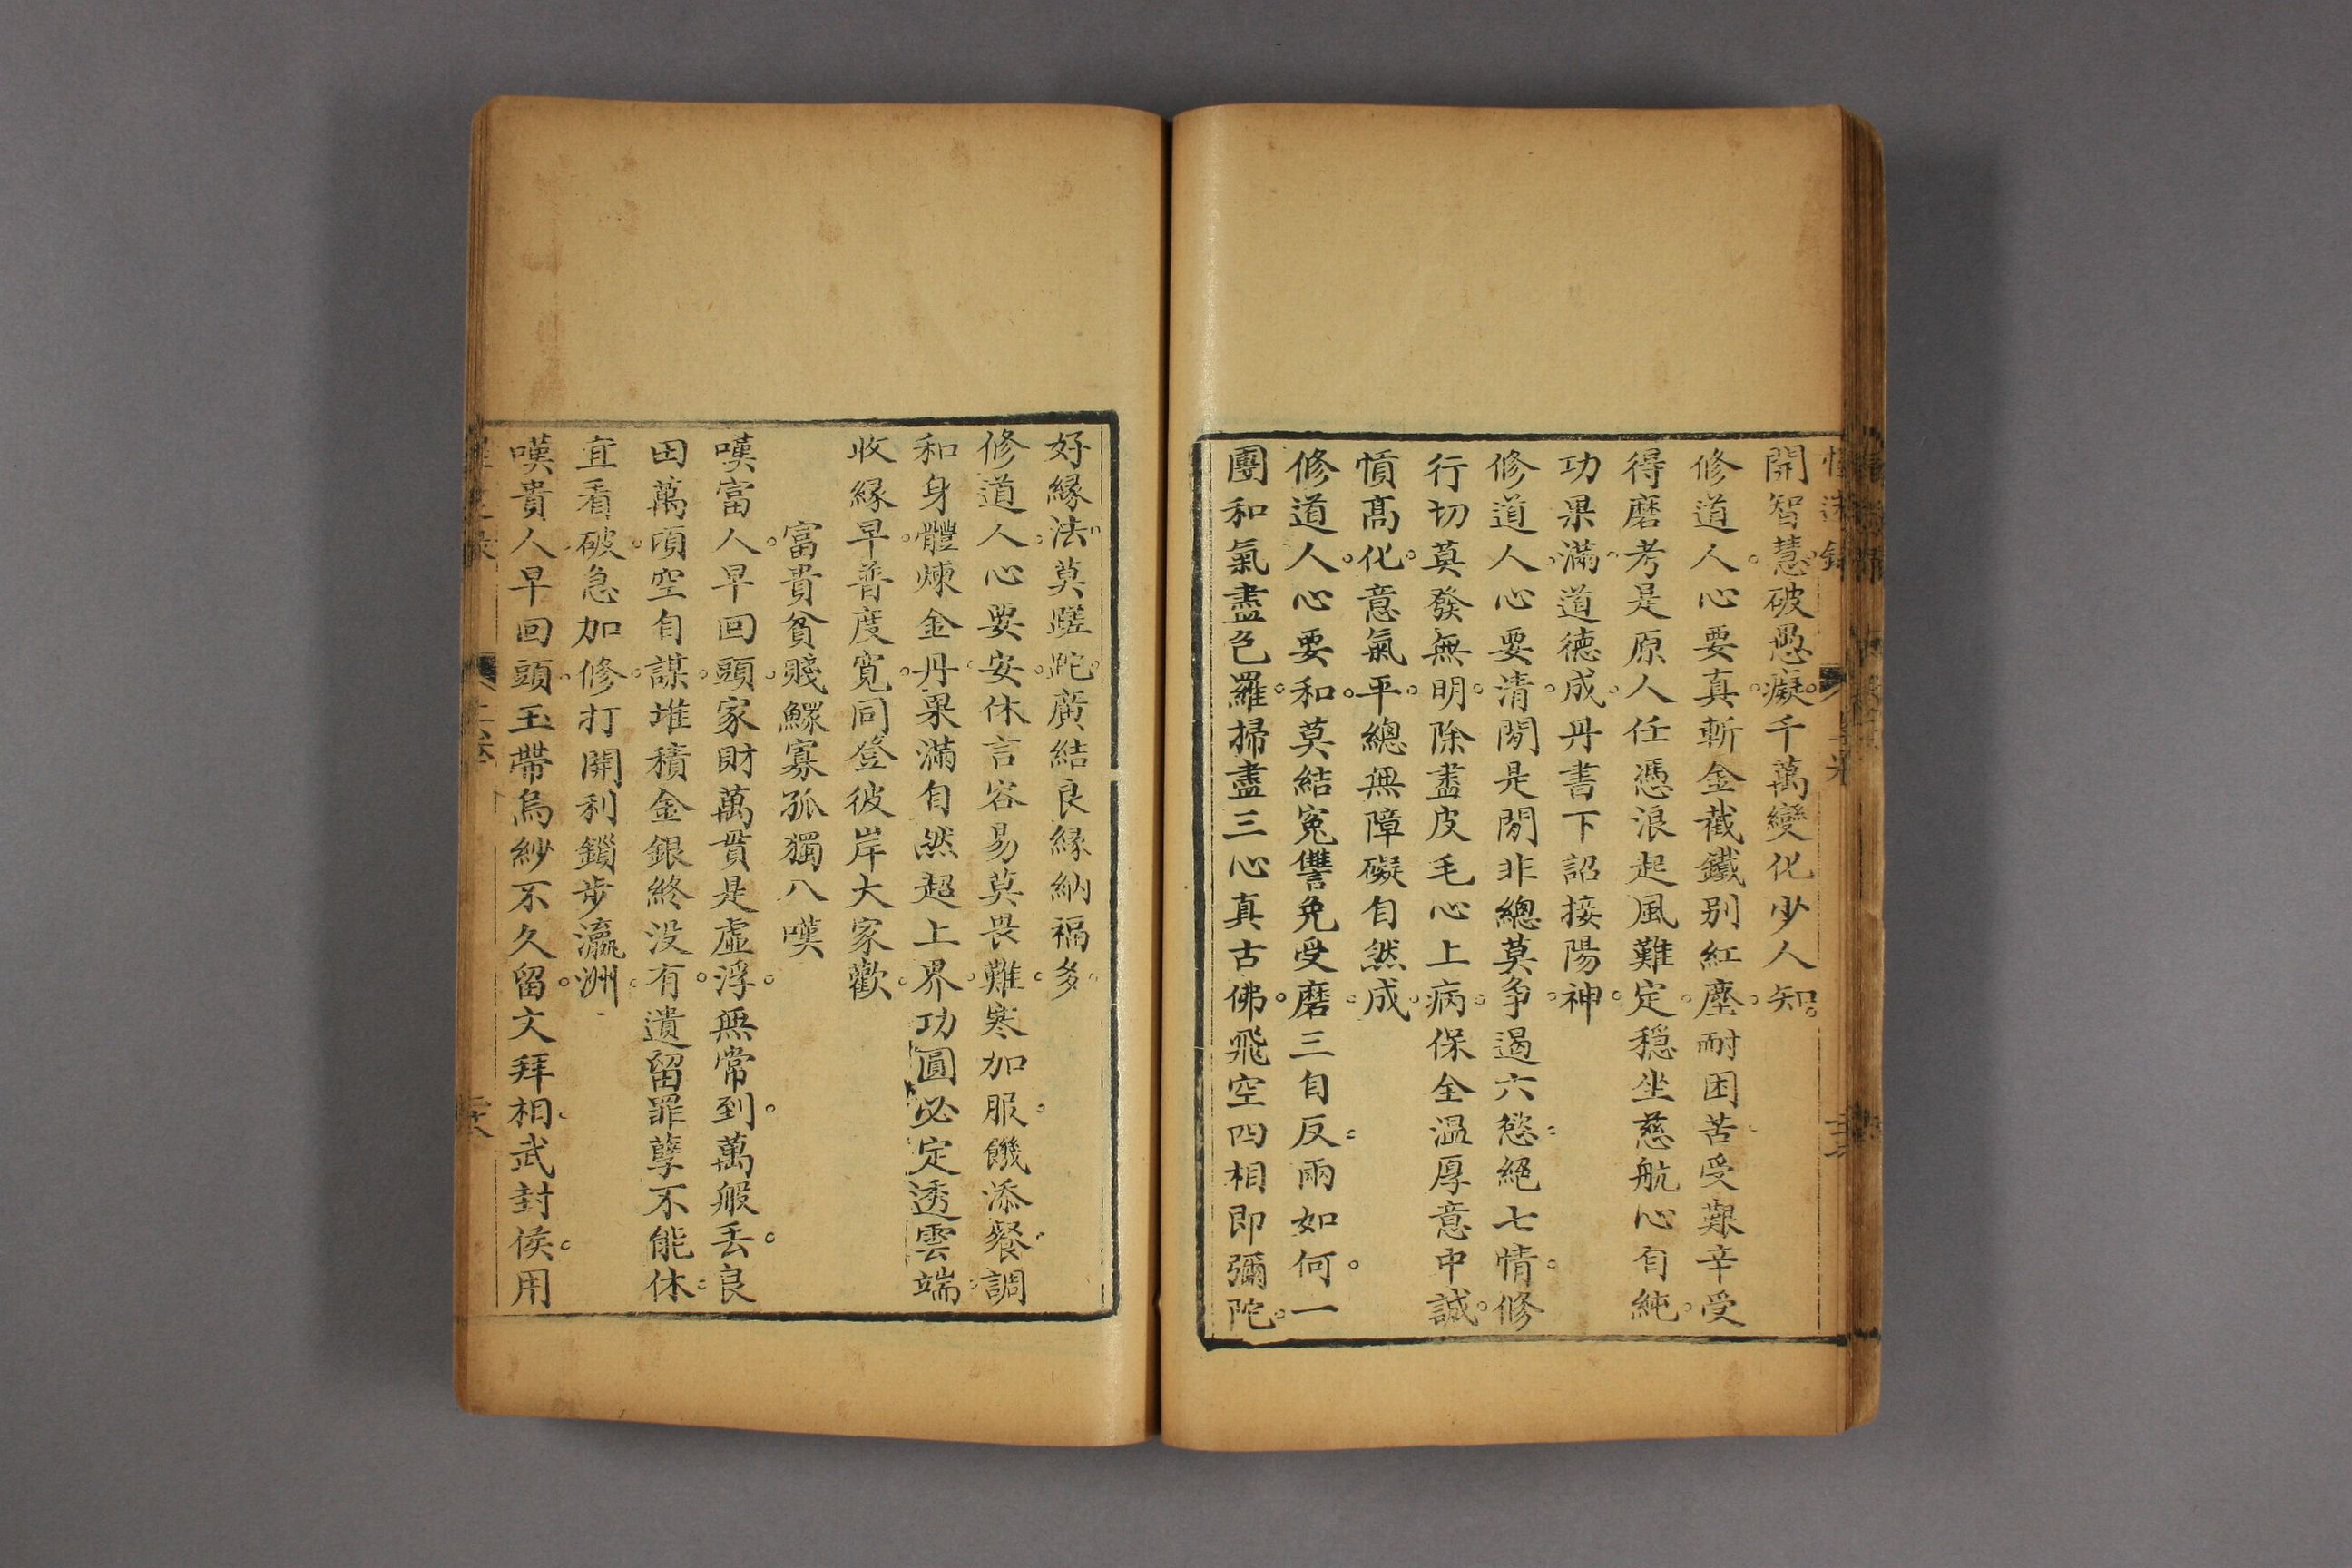 開智慧。破愚癡。千萬變化少人知。
修道人。心要真。斬金截鐵別紅塵。耐困苦。受艱辛。受
得磨考是原人。任憑浪起風難定。穩坐慈航心自純。
功果滿。道德成。丹書下詔接陽神。
修道人。心要清。閒是閒非總莫爭。遏六慾。絕七情。修
行切莫發無明。除盡皮毛心上病。保全溫厚意中誠。
憤高化。意氣平。總無障礙自然成。
修道人。心要和。莫結冤讐免受磨。三自反。兩如何。一
團和氣盡包羅。掃盡三心真古佛。飛空四相即彌陀。
好緣法。莫蹉跎。廣結良緣納福多。
修道人。心要安。休言容易莫畏難。寒加服。饑添餐。調
和身體煉金丹。果滿自然超上界。功圓必定透雲端。
收緣早。普度寬。同登彼岸大家歡。
富貴貧賤鰥寡孤獨八嘆
嘆富人。早回頭。家財萬貫是虛浮。無常到。萬般丟。良
田萬頃空自謀。堆積金銀終沒有。遺留罪孽不能休。
宜看破。急加修。打開利鎖步瀛洲。
嘆貴人。早回頭。玉帶烏紗不久留。文拜相。武封侯。用